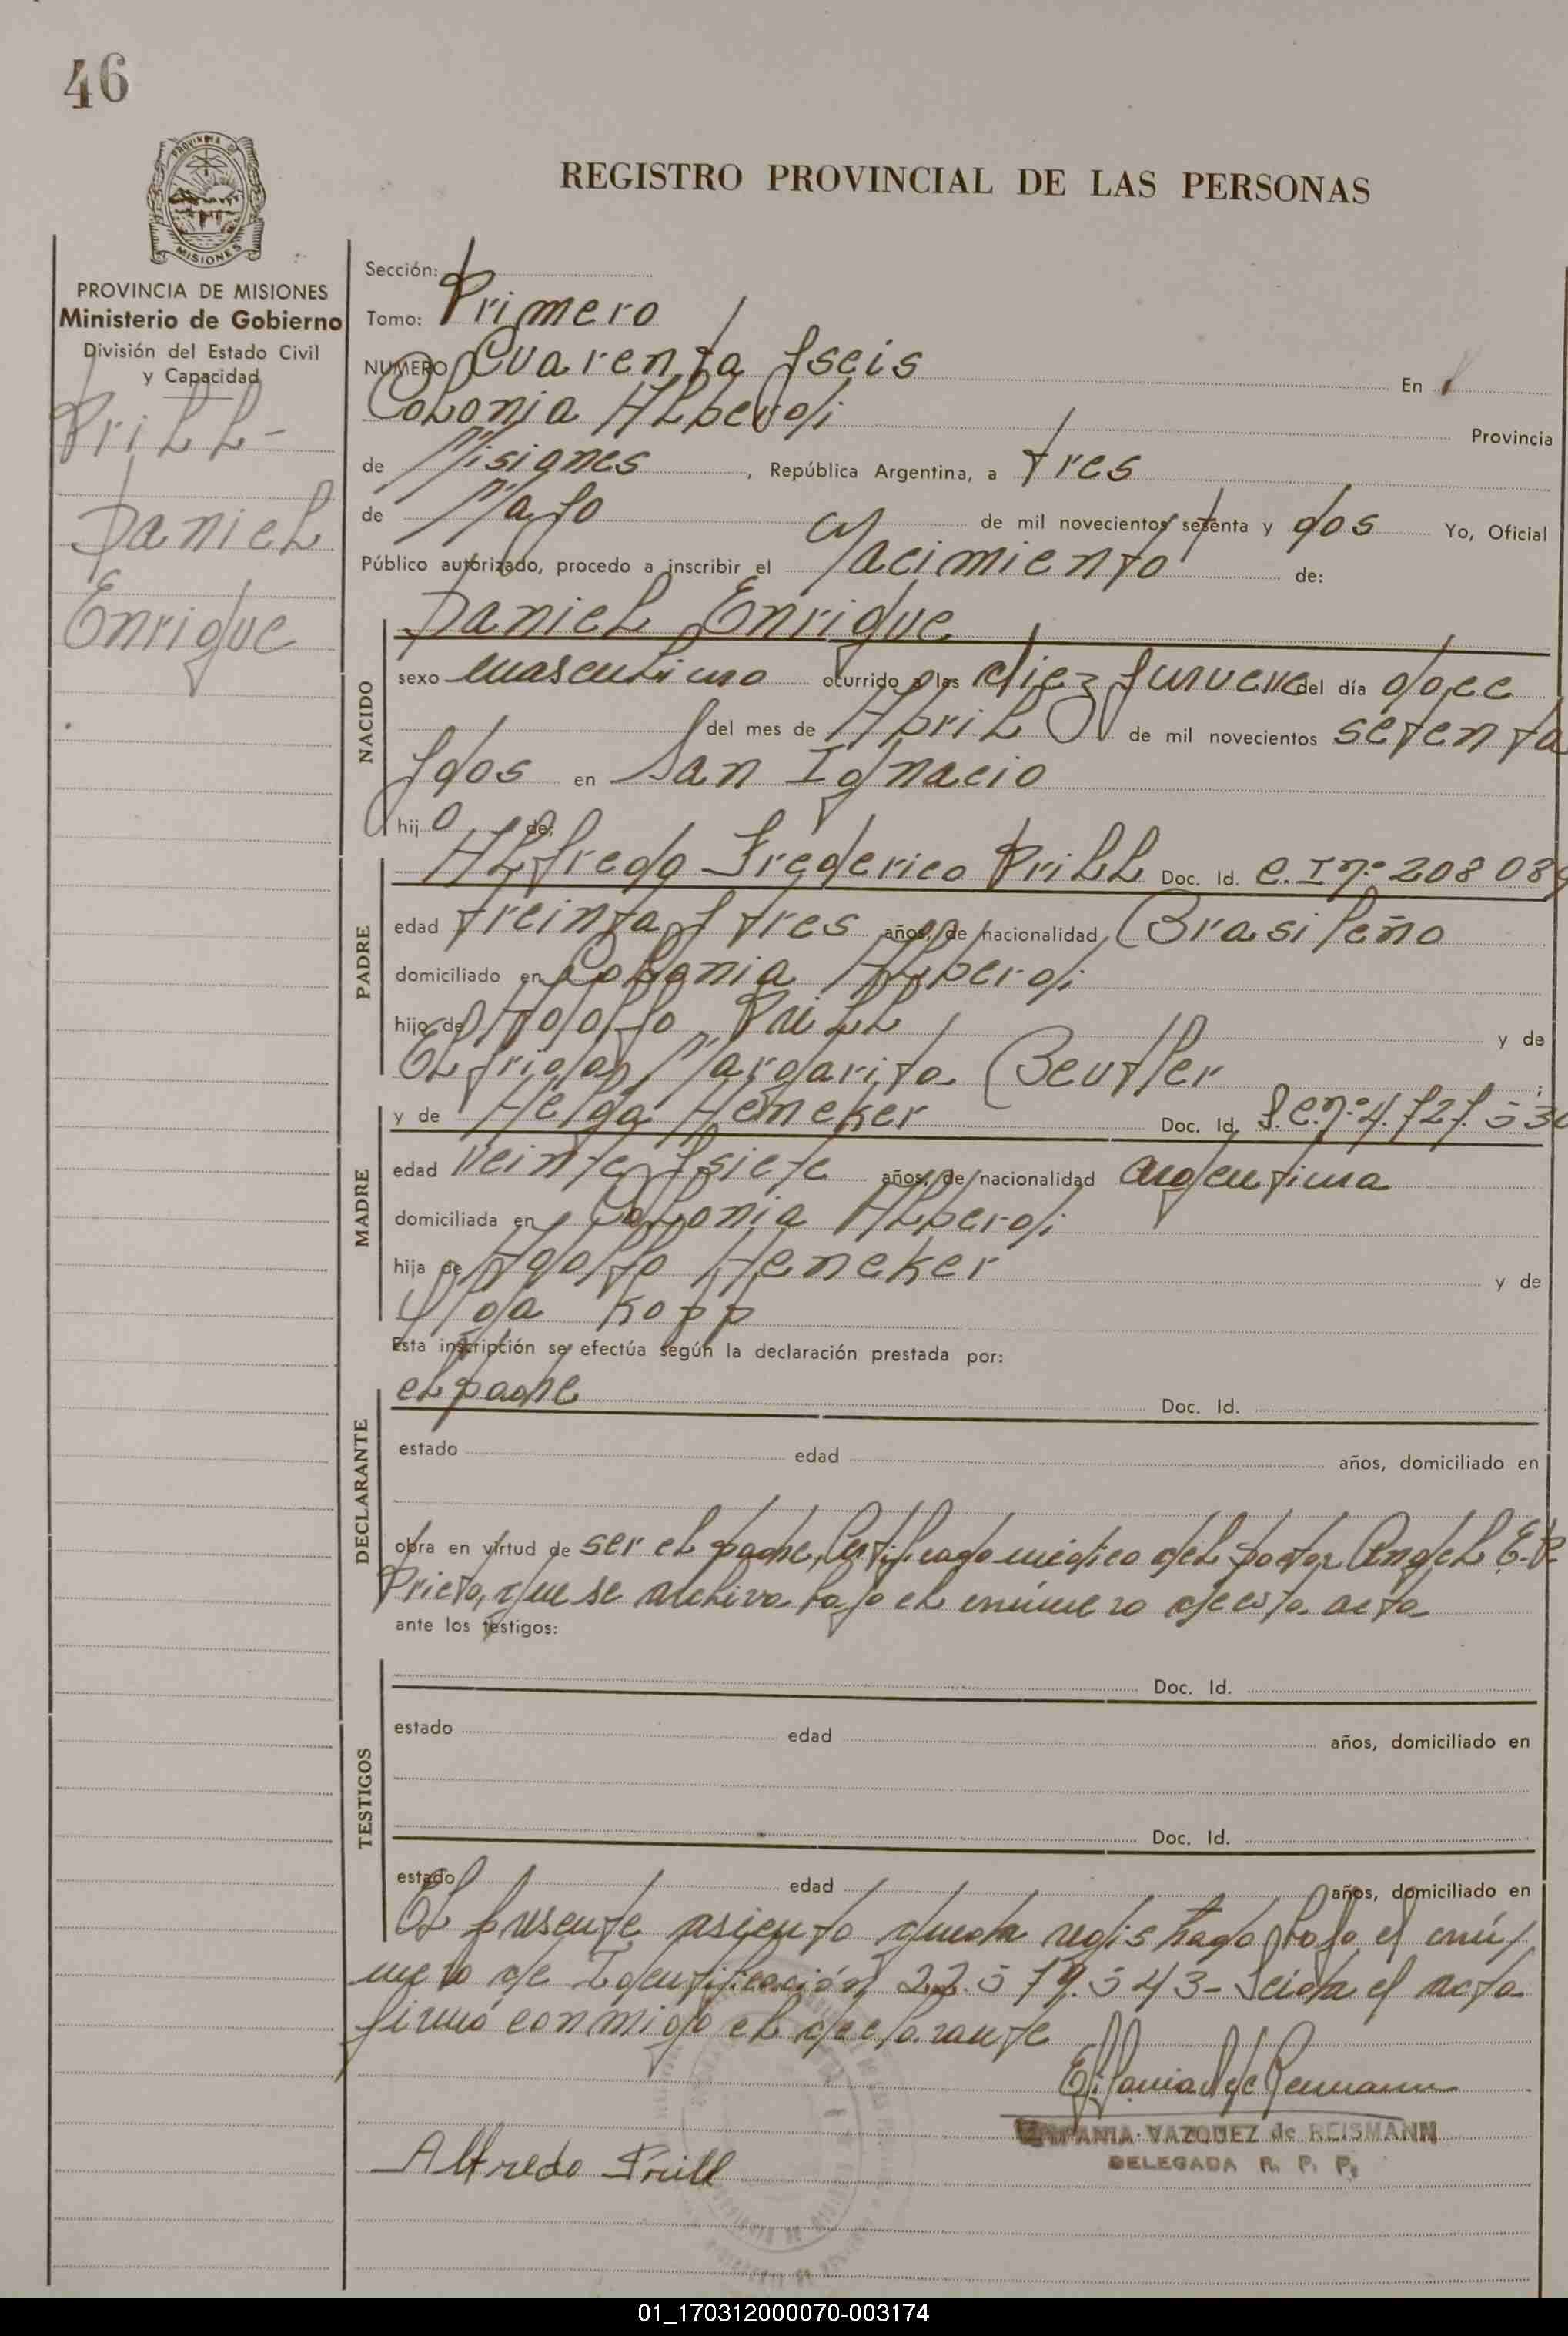 46
PROVINCIA DE
MISIONES
REGISTRO PROVINCIAL DE LAS PERSONAS
PROVINCIA DE MISIONES
Ministerio de Gobierno
División del Estado Civil
y Capacidad
Prill-
Daniel
Enrique
Sección:
Tomo: Primero
NUMERO Cuarenta y seis En
Colonia Alberdi Provincia
de Misiones, República Argentina, a tres
de Mayo de mil novecientos setenta y dos Yo, Oficial
Público autorizado, procedo a inscribir el Nacimiento de:
NACIDO
Daniel Enrique
sexo masculino ocurrido a las diez y nueve del día doce
del mes de Abril de mil novecientos setenta
y dos en San Ignacio
hijo de:
PADRE
Alfredo Frederico Prill Doc. Id. C. I nº 208 089
edad treinta y tres años, de nacionalidad Brasileño
domiciliado en Colonia Alberdi
hijo de Adolfo Prill y de
Elfrida Margarita Beutler ;
MADRE
y de Helga Heneker Doc. Id. L.C. nº 4.727.530
edad veinte y siete años, de nacionalidad argentina
domiciliada en Colonia Alberdi
hija de Adolfo Heneker y de
Olga Kopp
Esta inscripción se efectúa según la declaración prestada por:
DECLARANTE
el padre Doc. Id.
estado edad años, domiciliado en
obra en virtud de ser el padre, Certificado médico del doctor Angel E. R
Prieto, que se archiva bajo el número de esta acta
ante los testigos:
TESTIGOS
Doc. Id.
estado edad años, domiciliado en
Doc. Id.
estado edad años, domiciliado en
El presente asiento queda registrado bajo el nú-
mero de Identificación 22.579.543- Leída el acta
firmó conmigo el declarante
VAZQUEZ de REISMANN
DELEGADA R. P. P.
Alfredo Prill
01_170312000070-003174